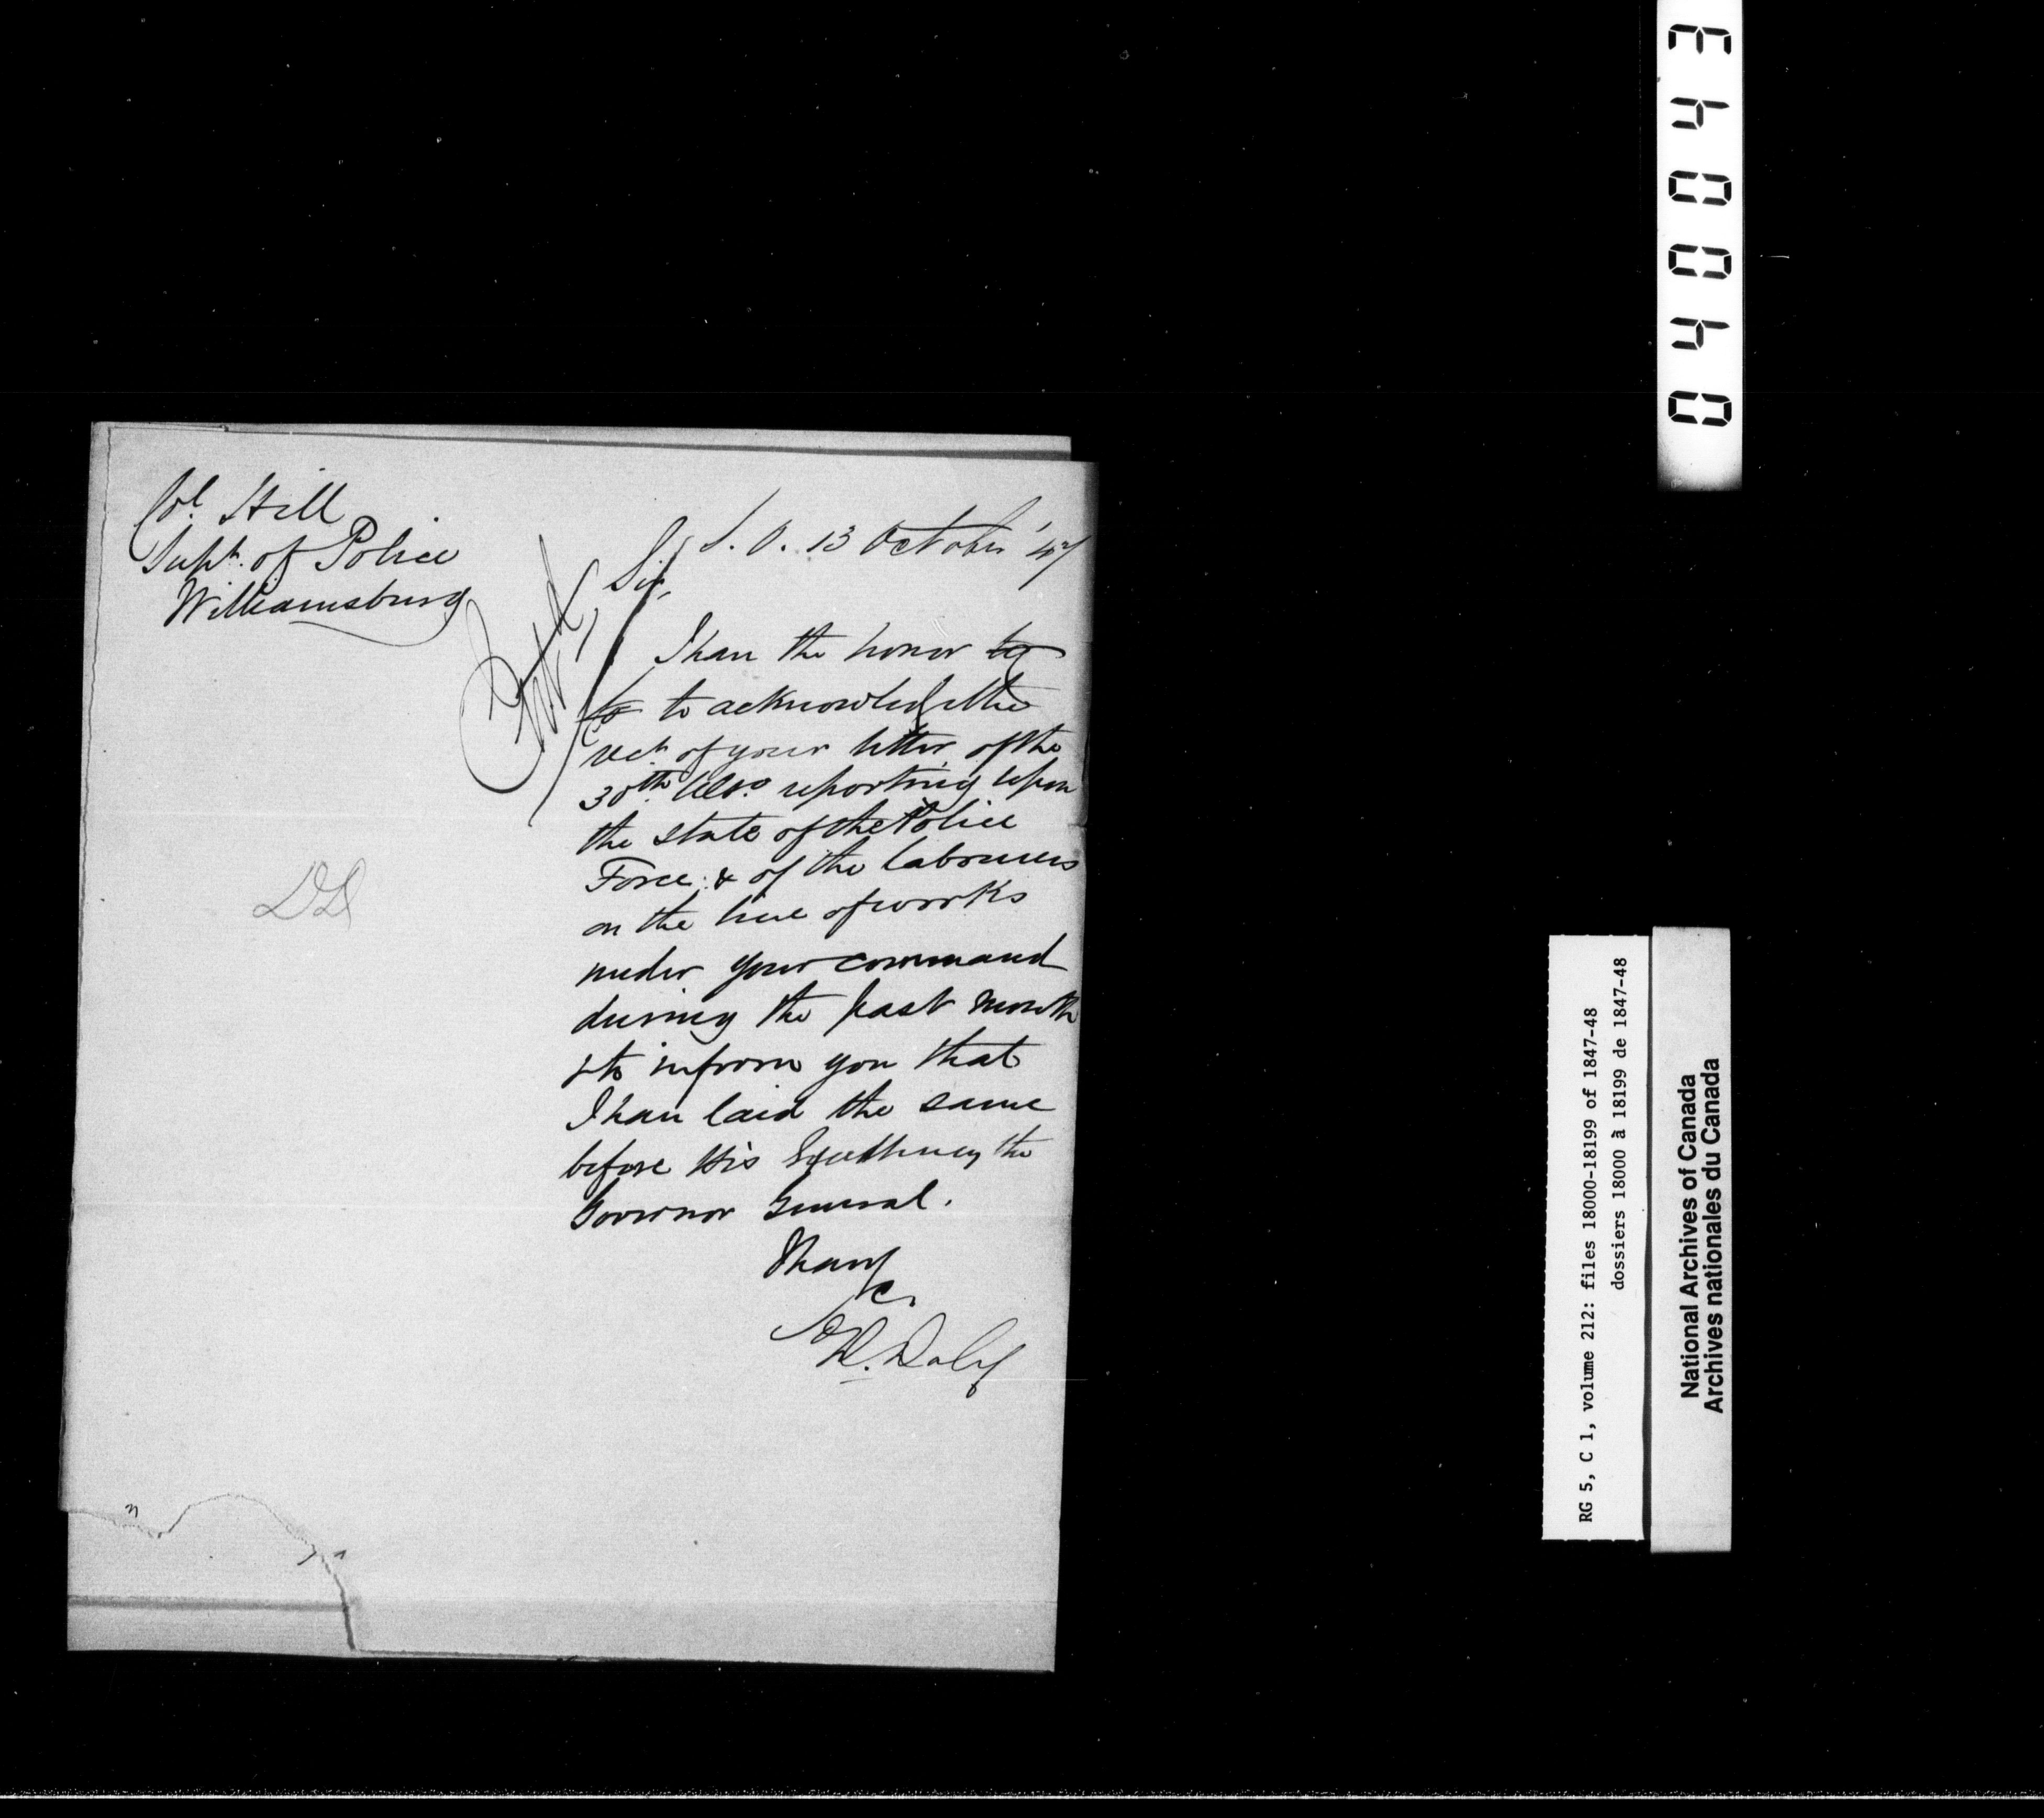 Col. Hill
Supt. of Police
Williamsburg
S. O. 13 October '47
Sir,
I have the honor to
to to acknowledge the
rect. of your letter of the
30th. Ulto. reporting upon
the state of the Police
Force; & of the labourers
on the line of works
under your command
during the past month
& to inform you that
I have laid the same
before His Excellency the
Governor General.
I have
&c.
D. Daly
RG 5, C 1, volume 212: files 18000-18199 of 1847-48
dossiers 18000 à 18199 de 1847-48
National Archives of Canada
Archives nationales du Canada